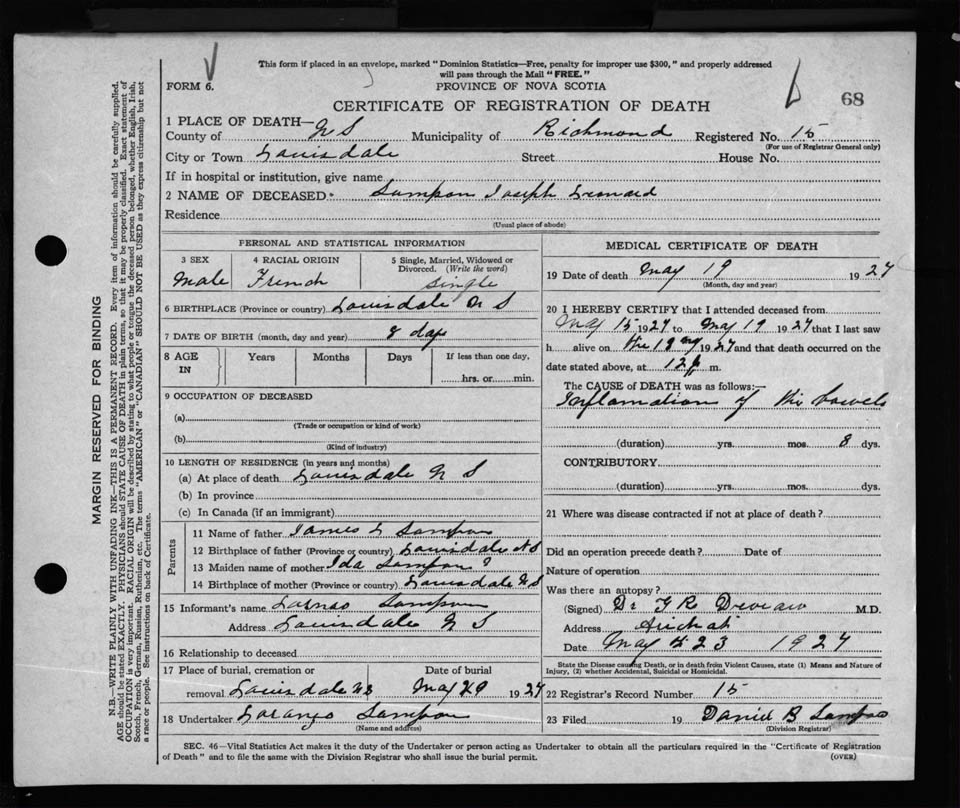 This form if placed in an envelope, marked "Dominion Statistics—Free, penalty for improper use $300," and properly addressed
will pass through the Mail "FREE."
FORM 6.
PROVINCE OF NOVA SCOTIA
68
CERTIFICATE OF REGISTRATION OF DEATH
1 PLACE OF DEATH—
County of N S Municipality of Richmond Registered No. 15
(For use of Registrar General only)
City or Town Louisdale Street House No.
If in hospital or institution, give name
2 NAME OF DECEASED Sampson Joseph Leonard
Residence
(Usual place of abode)
PERSONAL AND STATISTICAL INFORMATION
3 SEX 4 RACIAL ORIGIN 5 Single, Married, Widowed or Divorced. (Write the word)
Male French Single
6 BIRTHPLACE (Province or country) Louisdale N S
7 DATE OF BIRTH (month, day and year) 8 days
8 AGE IN Years Months Days If less than one day, hrs. or min.
9 OCCUPATION OF DECEASED
(a)
(Trade or occupation or kind of work)
(b)
(Kind of industry)
10 LENGTH OF RESIDENCE (in years and months)
(a) At place of death Louisdale N S
(b) In province
(c) In Canada (if an immigrant)
Parents
11 Name of father James Sampson
12 Birthplace of father (Province or country) Louisdale N S
13 Maiden name of mother Ida Sampson ?
14 Birthplace of mother (Province or country) Louisdale N S
15 Informant's name Sampson
Address Louisdale N S
16 Relationship to deceased
17 Place of burial, cremation or removal Louisdale N S Date of burial May 29 1927
18 Undertaker Sampson
(Name and address)
MEDICAL CERTIFICATE OF DEATH
19 Date of death May 19 1927
(Month, day and year)
20 I HEREBY CERTIFY that I attended deceased from
May 15 1927 to May 19 1927 that I last saw
h alive on the 19 1927 and that death occurred on the
date stated above, at 12 m.
The CAUSE of DEATH was as follows:—
Inflamation of the bowels
(duration) yrs. mos. 8 dys.
CONTRIBUTORY
(duration) yrs. mos. dys.
21 Where was disease contracted if not at place of death?
Did an operation precede death? Date of
Nature of operation
Was there an autopsy?
(Signed) Dr M.D.
Address Arichat
Date May 23 1927
State the Disease causing Death, or in death from Violent Causes, state (1) Means and Nature of
Injury, (2) whether Accidental, Suicidal or Homicidal.
22 Registrar's Record Number 15
23 Filed 19 Daniel B Sampson
(Division Registrar)
SEC. 46—Vital Statistics Act makes it the duty of the Undertaker or person acting as Undertaker to obtain all the particulars required in the "Certificate of Registration
of Death" and to file the same with the Division Registrar who shall issue the burial permit.
(OVER)
MARGIN RESERVED FOR BINDING
N.B.—WRITE PLAINLY WITH UNFADING INK—THIS IS A PERMANENT RECORD. Every item of information should be carefully supplied.
AGE should be stated EXACTLY. PHYSICIANS should STATE CAUSE OF DEATH in plain terms, so that it may be properly classified. Exact statement of
OCCUPATION is very important. RACIAL ORIGIN will be described by stating to what people or tongue the deceased person belonged, whether English, Irish,
Scotch, French, German, Russian, Ruthenian, etc. The terms "AMERICAN" or "CANADIAN" SHOULD NOT BE USED as they express citizenship but not
a race or people. See instructions on back of Certificate.